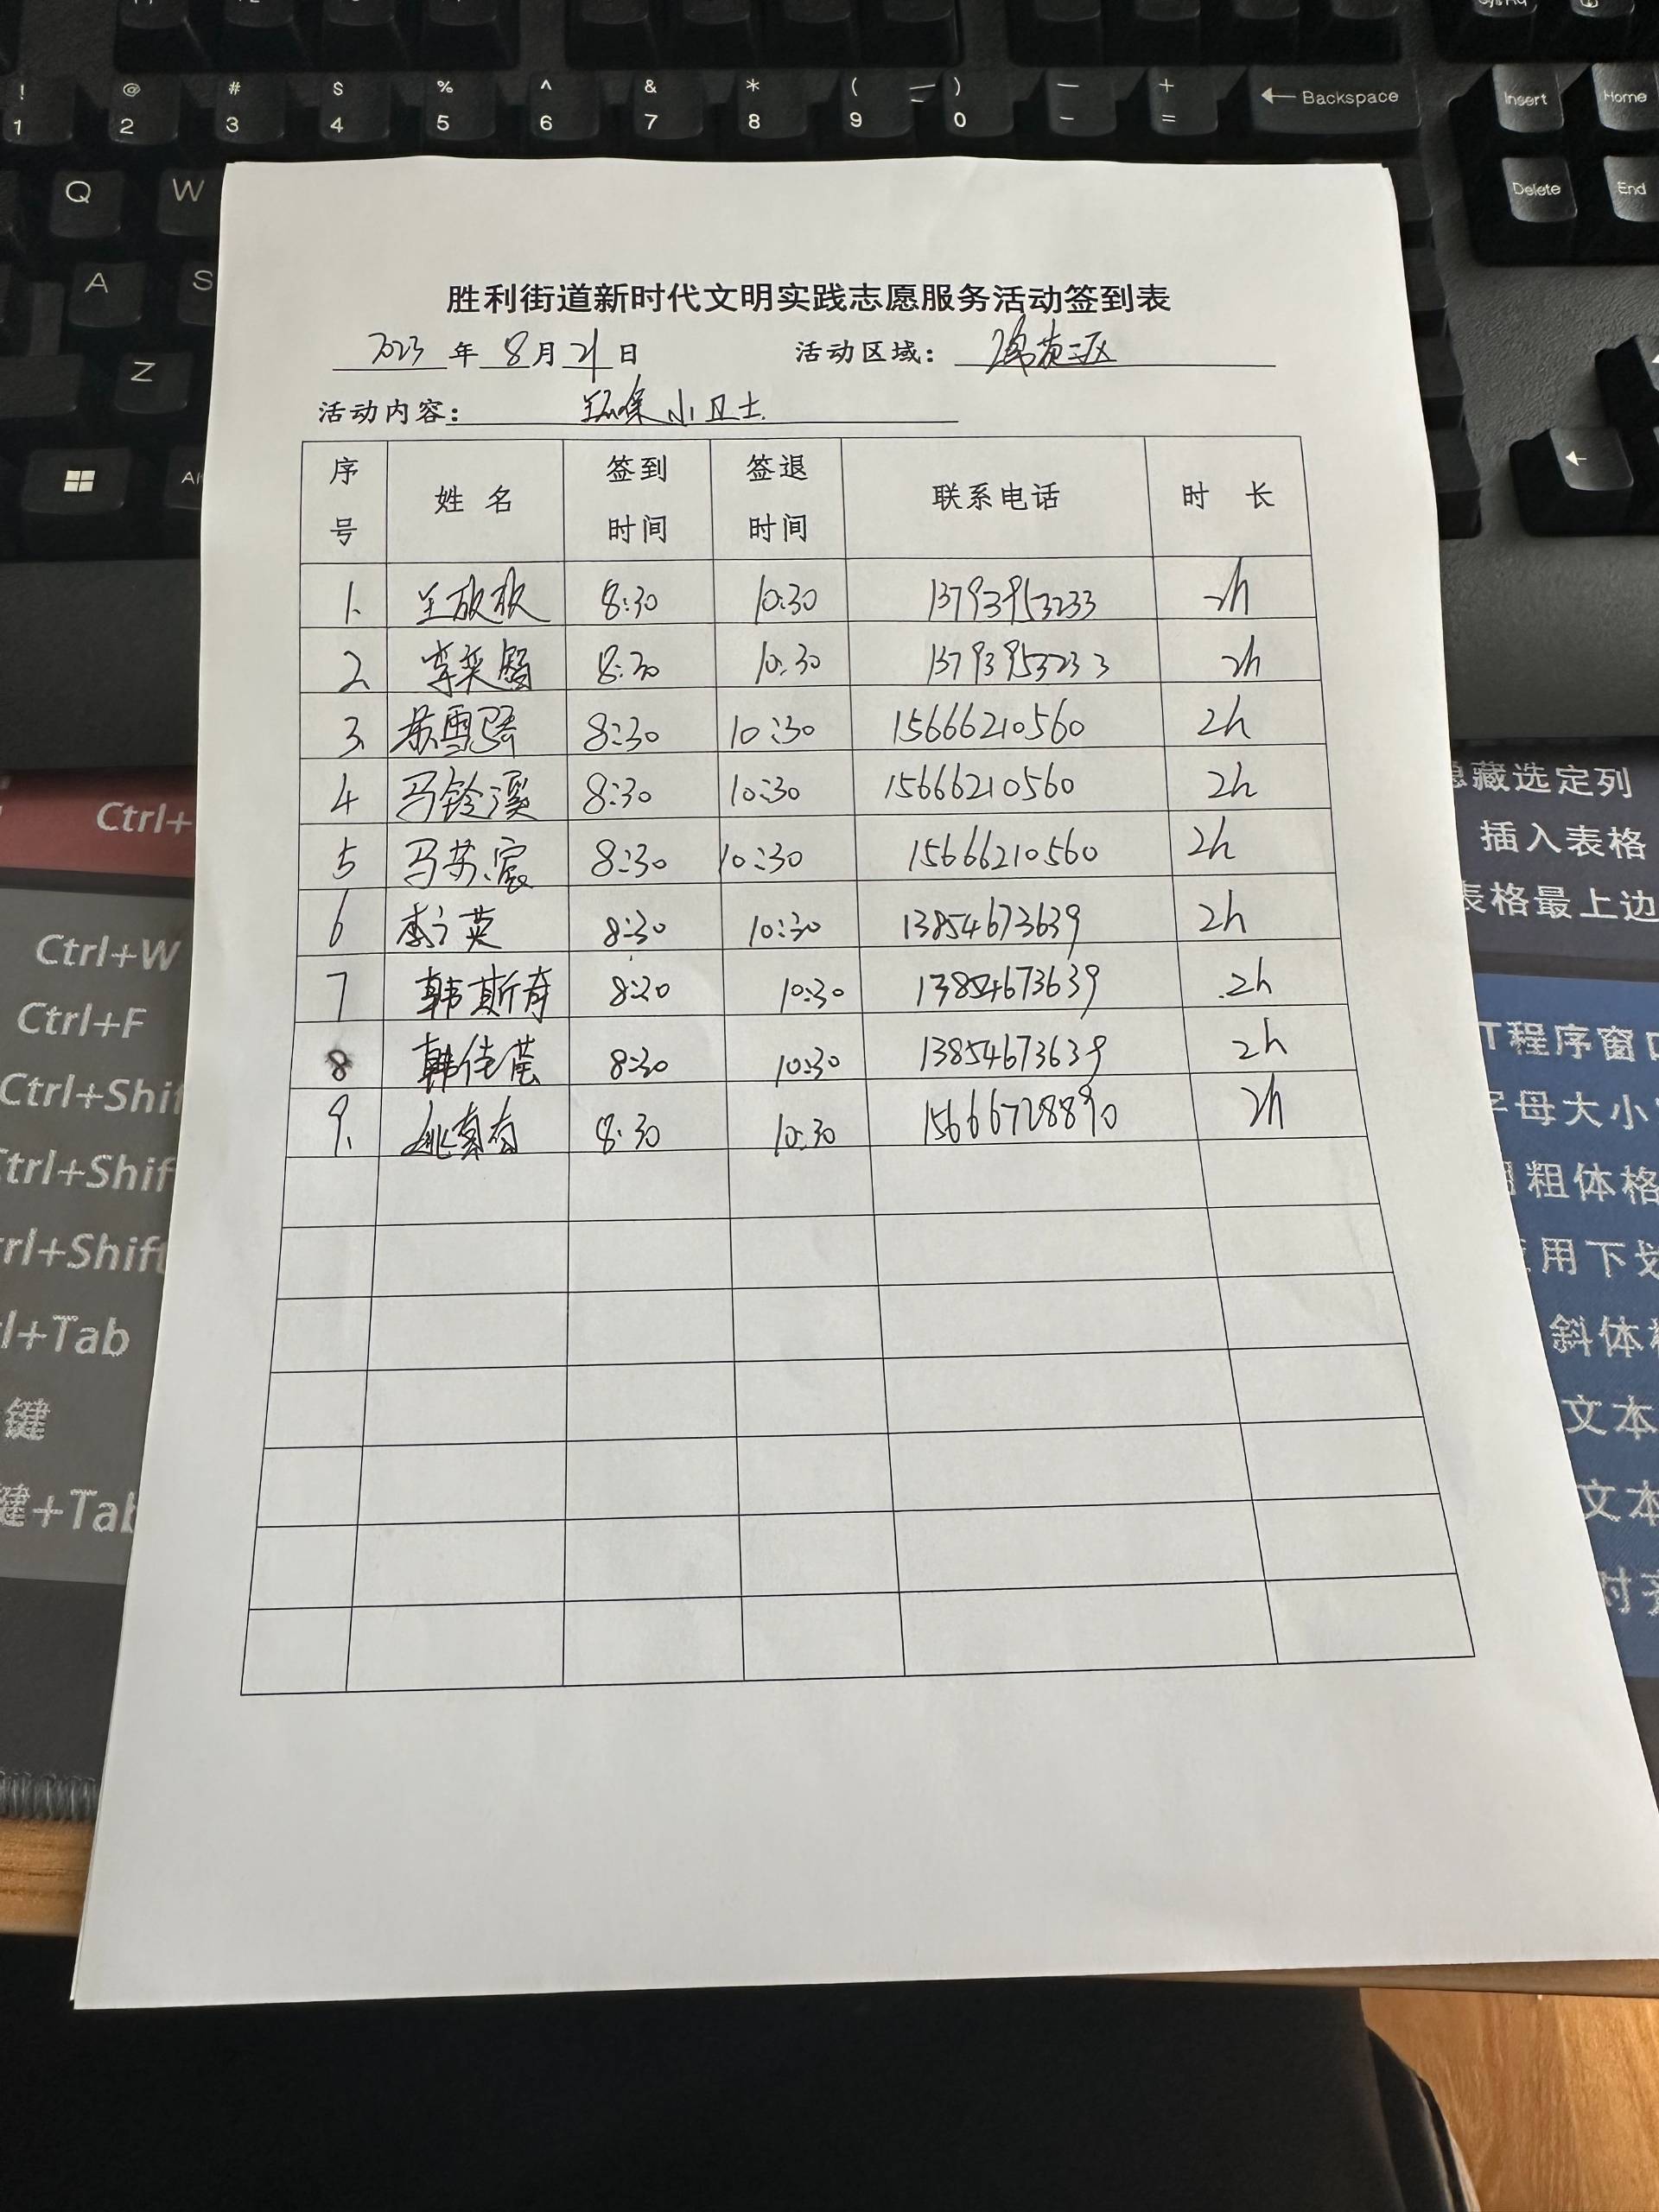 ! @ # $ % ^ & * ( ) — +
1 2 3 4 5 6 7 8 9 0 - = Backspace Insert Home
Q W Delete End
A S
Z
胜利街道新时代文明实践志愿服务活动签到表
2023 年 8 月 21 日 活动区域:
活动内容: 环保小卫士
序号 姓 名 签到时间 签退时间 联系电话 时 长
1. 8:30 10:30 13793953233 2h
2. 8:30 10:30 13793953233 2h
3. 苏雪骄 8:30 10:30 15666210560 2h
4 马铃溪 8:30 10:30 15666210560 2h
5 马苏宸 8:30 10:30 15666210560 2h
6 李之英 8:30 10:30 13854673639 2h
7 韩斯奇 8:30 10:30 13854673639 2h
8 韩佳莹 8:30 10:30 13854673639 2h
9. 8:30 10:30 15666728890 2h
Ctrl+
Ctrl+W
Ctrl+F
Ctrl+Shif
Ctrl+Shif
rl+Shift
l+Tab
键
键+Tab
隐藏选定列
插入表格
表格最上边
T程序窗口
字母大小
粗体格
用下划
斜体
文本
文本
对齐